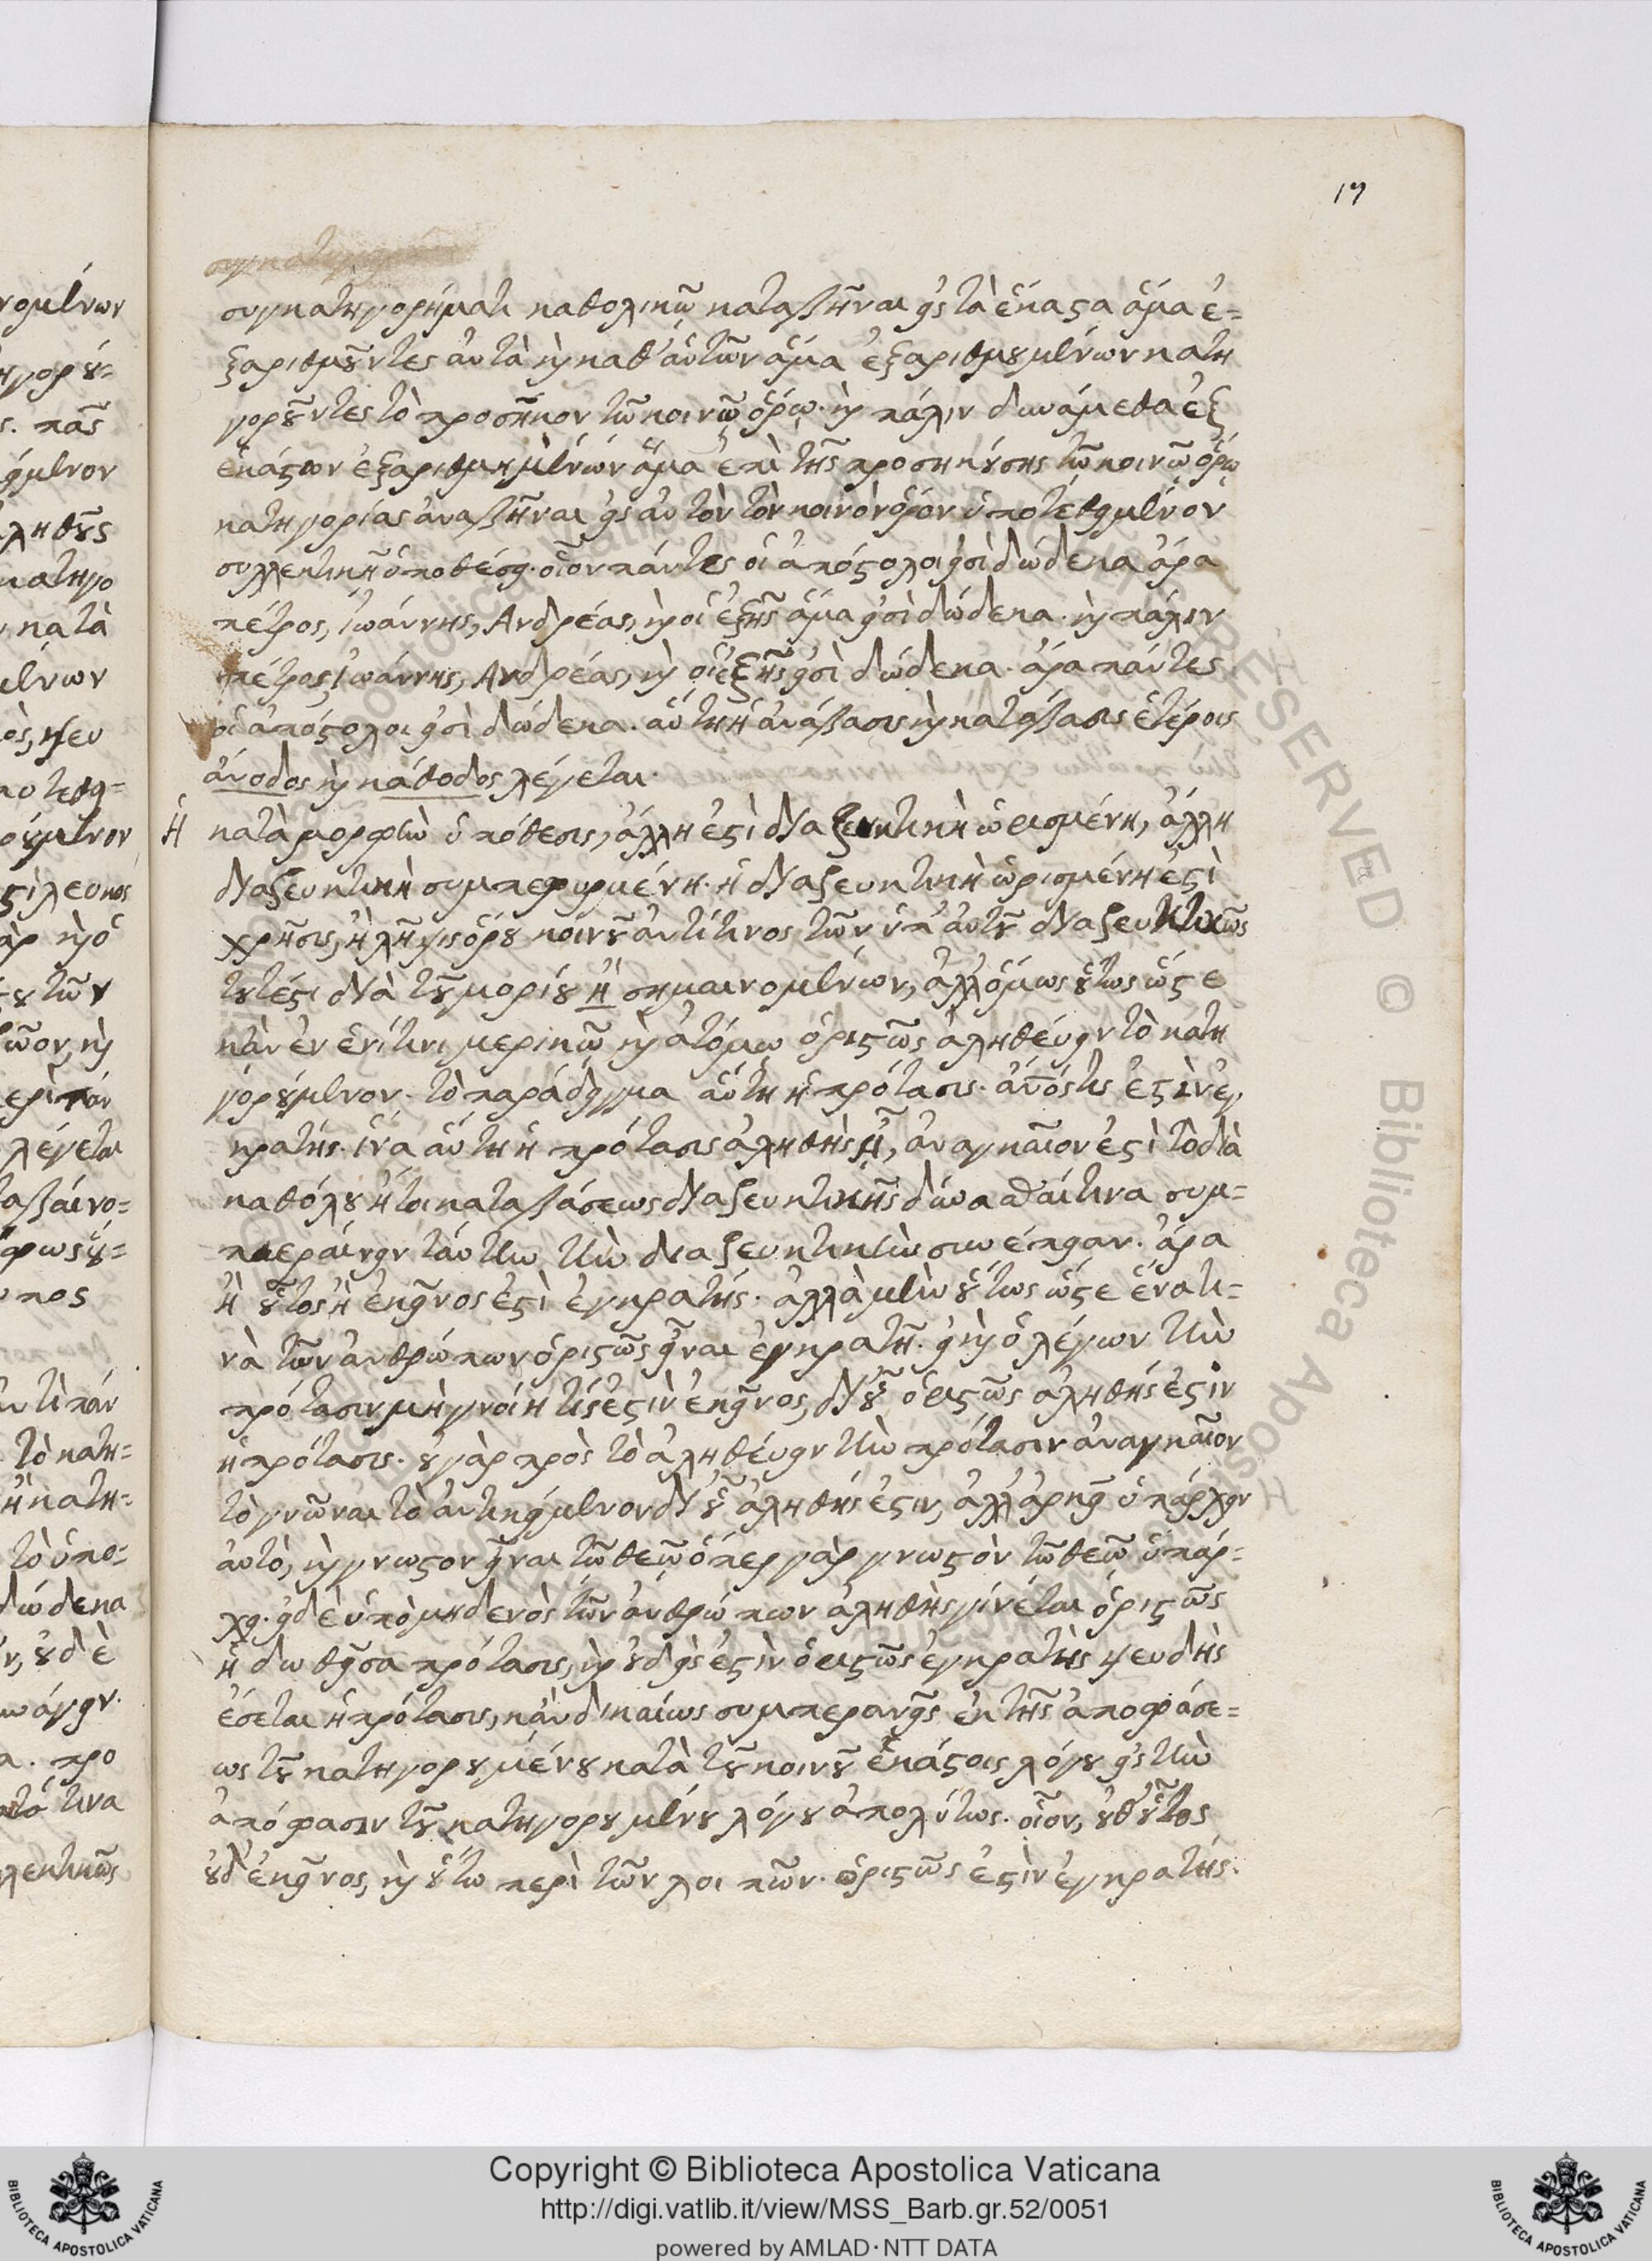 19
συγκατηγορήματι καθολικῷ καταβῆναι εἰς τὰ ἕκαστα ἅμα ἐ=
ξαριθμοῦντες αὐτὰ καὶ καθ' αὑτῶν ἅμα ἐξαριθμουμένων κατη
γοροῦντες τὸ προσῆκον τῷ κοινῷ ὅρῳ. καὶ πάλιν δυνάμεθα ἐξ
ἑκάστων ἐξαριθμημένων ἅμα ἐπὶ τῆς προσηκούσης τῷ κοινῷ ὅρῳ
κατηγορίας ἀναβῆναι εἰς αὐτὸν τὸν κοινὸν ὅρον ὑποτεθειμένον
συλλεκτικῇ ὑποθέσει. οἷον πάντες οἱ ἀπόστολοι εἰσὶ δώδεκα ἄρα
πέτρος, ἰωάννης, Ανδρέας, καὶ οἱ ἑξῆς ἅμα εἰσὶ δώδεκα. καὶ πάλιν
πέτρος, ἰωάννης, Ανδρέας, καὶ οἱ ἑξῆς εἰσὶ δώδεκα. ἄρα πάντες
οἱ ἀπόστολοι εἰσὶ δώδεκα. αὕτη ἡ ἀνάβασις καὶ κατάβασις ἑτέροις
ἄνοδος καὶ κάθοδος λέγεται.
Ἡ κατὰ μορφὴν ὑπόθεσις, ἄλλη ἐστὶ διαζευκτικὴ ὡρισμένη, ἄλλη
διαζευκτικὴ συμπεφυρμένη. ἡ διαζευκτικὴ ὡρισμένη ἐστὶ
χρῆσις, ἢ λῆψις ὅρου κοινοῦ ἀντί τινος τῶν ὑπ' αὐτοῦ διαζευκτικῶς
τουτέστι διὰ τοῦ μορίου ἢ σημαινομένων, ἀλλ' ὅμως οὕτως ὥστε
κἂν ἐν ἑνί τινι μερικῷ καὶ ἀτόμῳ ὁριστῶς ἀληθεύειν τὸ κατη
γορούμενον. τὸ παράδειγμα αὕτη ἡ πρότασις. ἄνος τις ἐστὶν ἐγ
κρατής. ἵνα αὕτη ἡ πρότασις ἀληθὴς ᾖ, ἀναγκαῖον ἐστὶ τὸ διὰ
καθόλου ἤτοι καταβάσεως διαζευκτικῆς δύνασθαί τινα συμ=
περαίνειν ταύτην τὴν διαζευκτικὴν συνέπειαν. ἄρα
ἢ οὗτος ἢ ἐκεῖνος ἐστὶ ἐγκρατής. ἀλλὰ μὴν οὕτως ὥστε ἕνα τι=
νὰ τῶν ἀνθρώπων ὁριστῶς εἶναι ἐγκρατῆ. εἰ καὶ ὁ λέγων τὴν
πρότασιν μὴ γνοίη τίς ἐστιν ἐκεῖνος, δι' οὗ ὁριστῶς ἀληθής ἐστιν
ἡ πρότασις. οὐ γὰρ πρὸς τὸ ἀληθεύειν τὴν πρότασιν ἀναγκαῖον
τὸ γνῶναι τὸ ἀντικείμενον δι' οὗ ἀληθής ἐστιν, ἀλλ' ἀρκεῖ ὑπάρχειν
αὐτὸ, καὶ γνωστον εἶναι τῷ θεῷ ὅπερ γὰρ γνωστὸν τῷ θεῷ ὑπάρ=
χει. εἰ δὲ ὑπὸ μηδενὸς τῶν ἀνθρώπων ἀληθὴς γίνεται ὁριστῶς
ἡ δωθεῖσα πρότασις, καὶ οὐδείς ἐστιν ὁριστῶς ἐγκρατὴς ψευδὴς
ἔσεται ἡ πρότασις, κἂν δικαίως συμπερανεῖς ἐκ τῆς ἀποφάσε=
ως τοῦ κατηγορουμένου κατὰ τοῦ κοινοῦ ἑκάστοις λόγου εἰς τὴν
ἀπόφασιν τοῦ κατηγορουμένου λόγου ἀπολύτως. οἷον, οὔθ' οὗτος
οὐδ' ἐκεῖνος, καὶ οὕτω περὶ τῶν λοιπῶν. ὁριστῶς ἐστὶν ἐγκρατής.
Copyright © Biblioteca Apostolica Vaticana
http://digi.vatlib.it/view/MSS_Barb.gr.52/0051
powered by AMLAD·NTT DATA